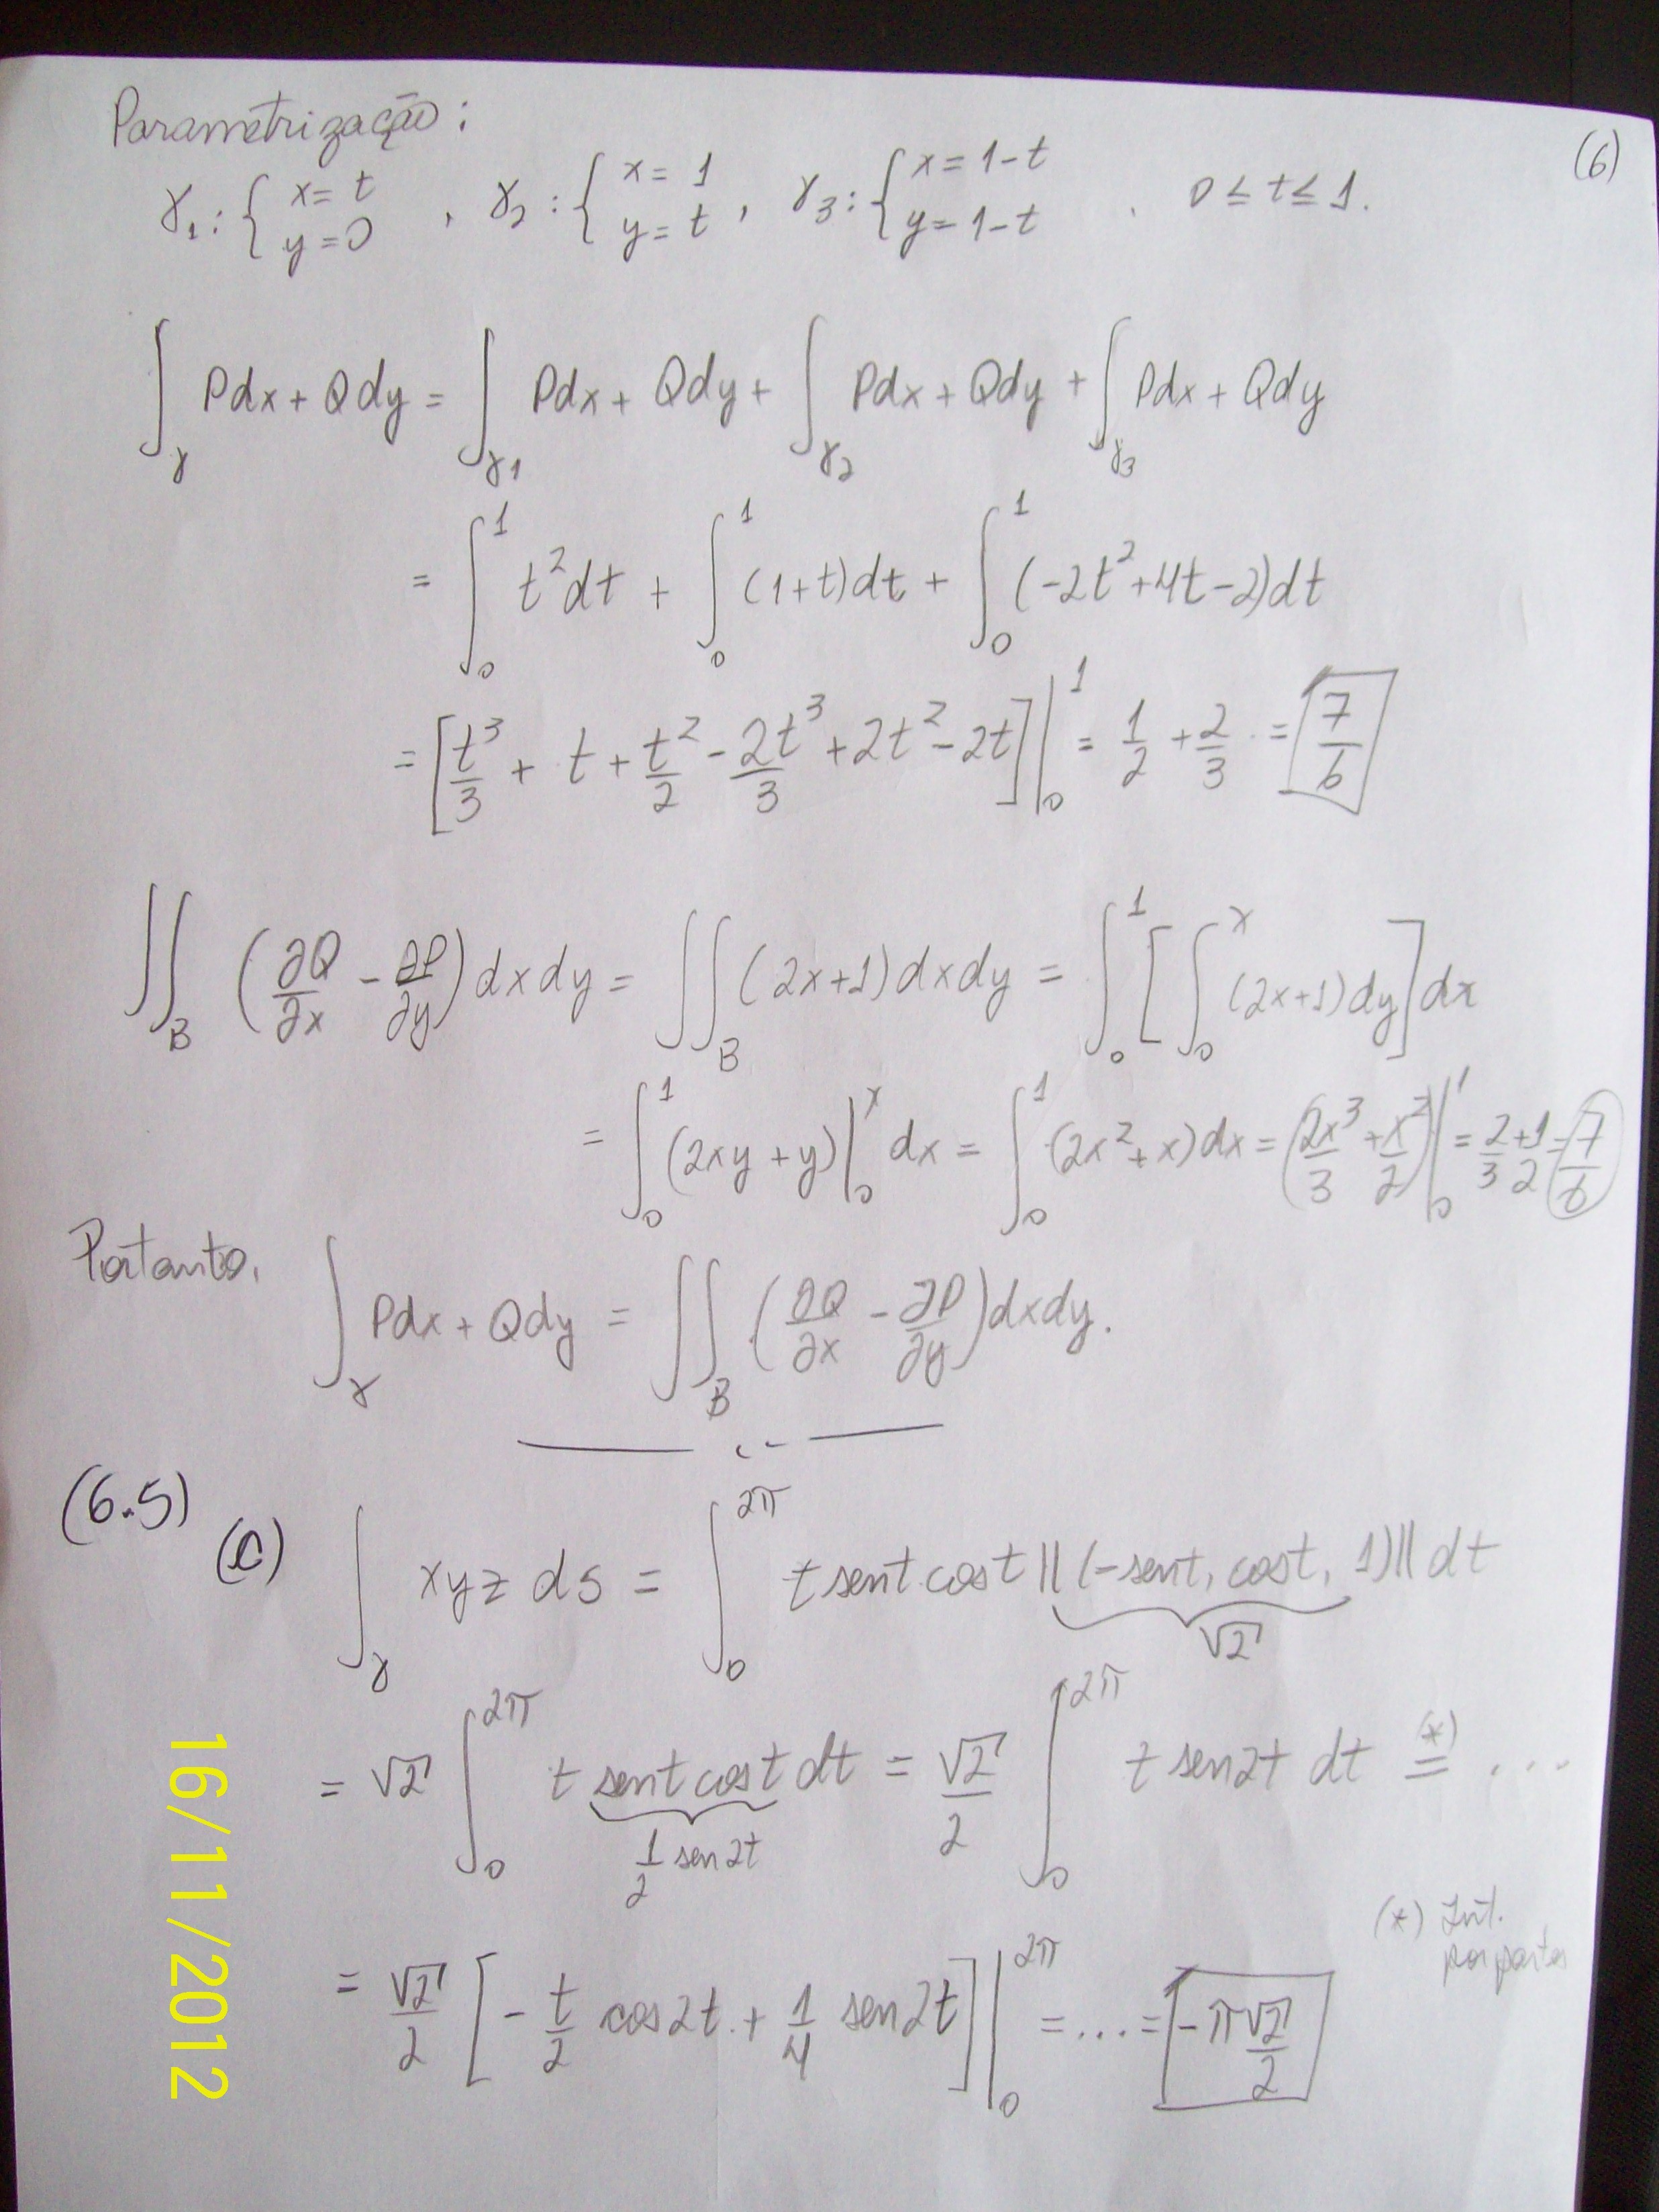 Parametrização:
(6)
γ₁: { x = t, y = 0 , γ₂: { x = 1, y = t , γ₃: { x = 1-t, y = 1-t . 0 ≤ t ≤ 1.
∫_γ Pdx + Qdy = ∫_γ₁ Pdx + Qdy + ∫_γ₂ Pdx + Qdy + ∫_γ₃ Pdx + Qdy
= ∫₀¹ t² dt + ∫₀¹ (1+t) dt + ∫₀¹ (-2t² + 4t - 2) dt
= [t³/3 + t + t²/2 - 2t³/3 + 2t² - 2t] |₀¹ = 1/2 + 2/3 = 7/6
∬_B (∂Q/∂x - ∂P/∂y) dxdy = ∬_B (2x+1) dxdy = ∫₀¹ [∫₀ˣ (2x+1) dy] dx
= ∫₀¹ (2xy + y) |₀ˣ dx = ∫₀¹ (2x² + x) dx = (2x³/3 + x²/2) |₀¹ = 2/3 + 1/2 = 7/6
Portanto, ∫_γ Pdx + Qdy = ∬_B (∂Q/∂x - ∂P/∂y) dxdy.
(6.5) (c) ∫_γ xyz ds = ∫₀^2π t sent cost ||(-sent, cost, 1)|| dt
√2
= √2 ∫₀^2π t sent cost dt = √2/2 ∫₀^2π t sen2t dt (*)= ...
1/2 sen2t
(*) Int. por partes
= √2/2 [-t/2 cos2t + 1/4 sen2t] |₀^2π = ... = -π√2/2
16/11/2012